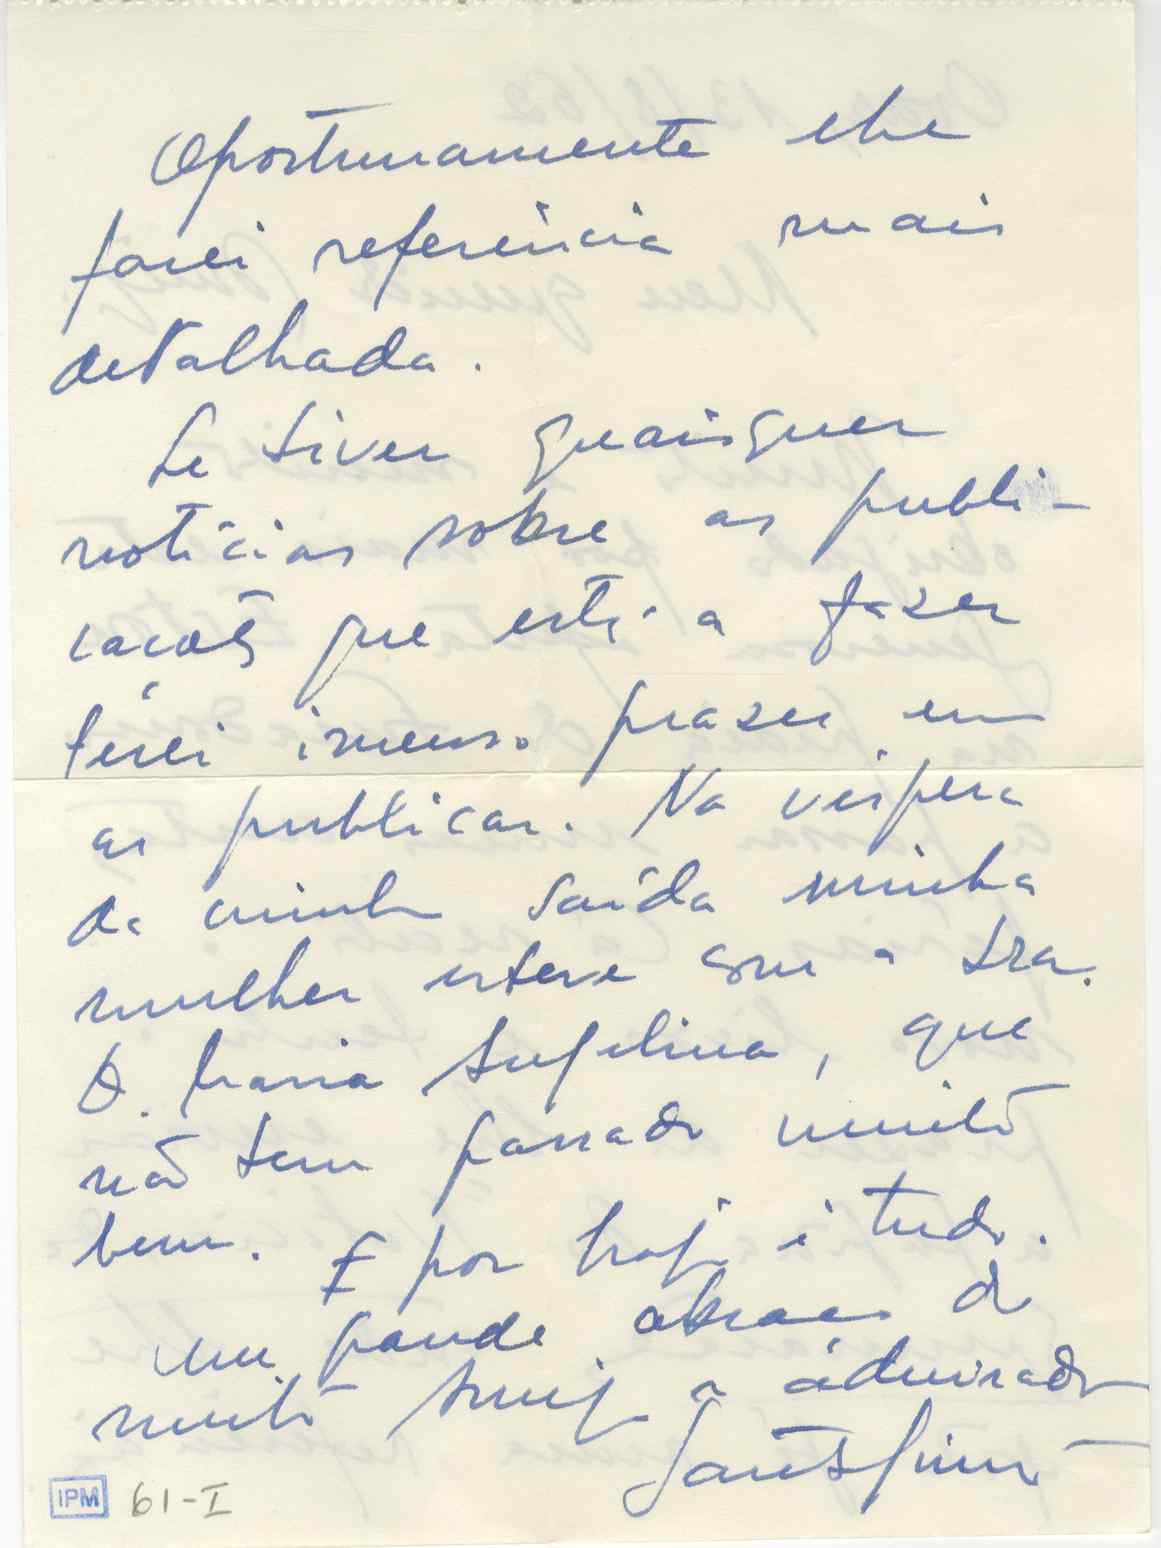 Oportunamente lhe
farei referência mais
detalhada.
Se tiver quaisquer
notícias sobre as publi-
cações que está a fazer
terei imenso prazer em
as publicar. Na véspera
da minha saída minha
mulher esteve com a Sra.
D. Maria Angelina, que
não tem passado muito
bem. E por hoje é tudo.
Um grande abraço do
muito Amigo e admirador
Santos Simões
IPM 61-I